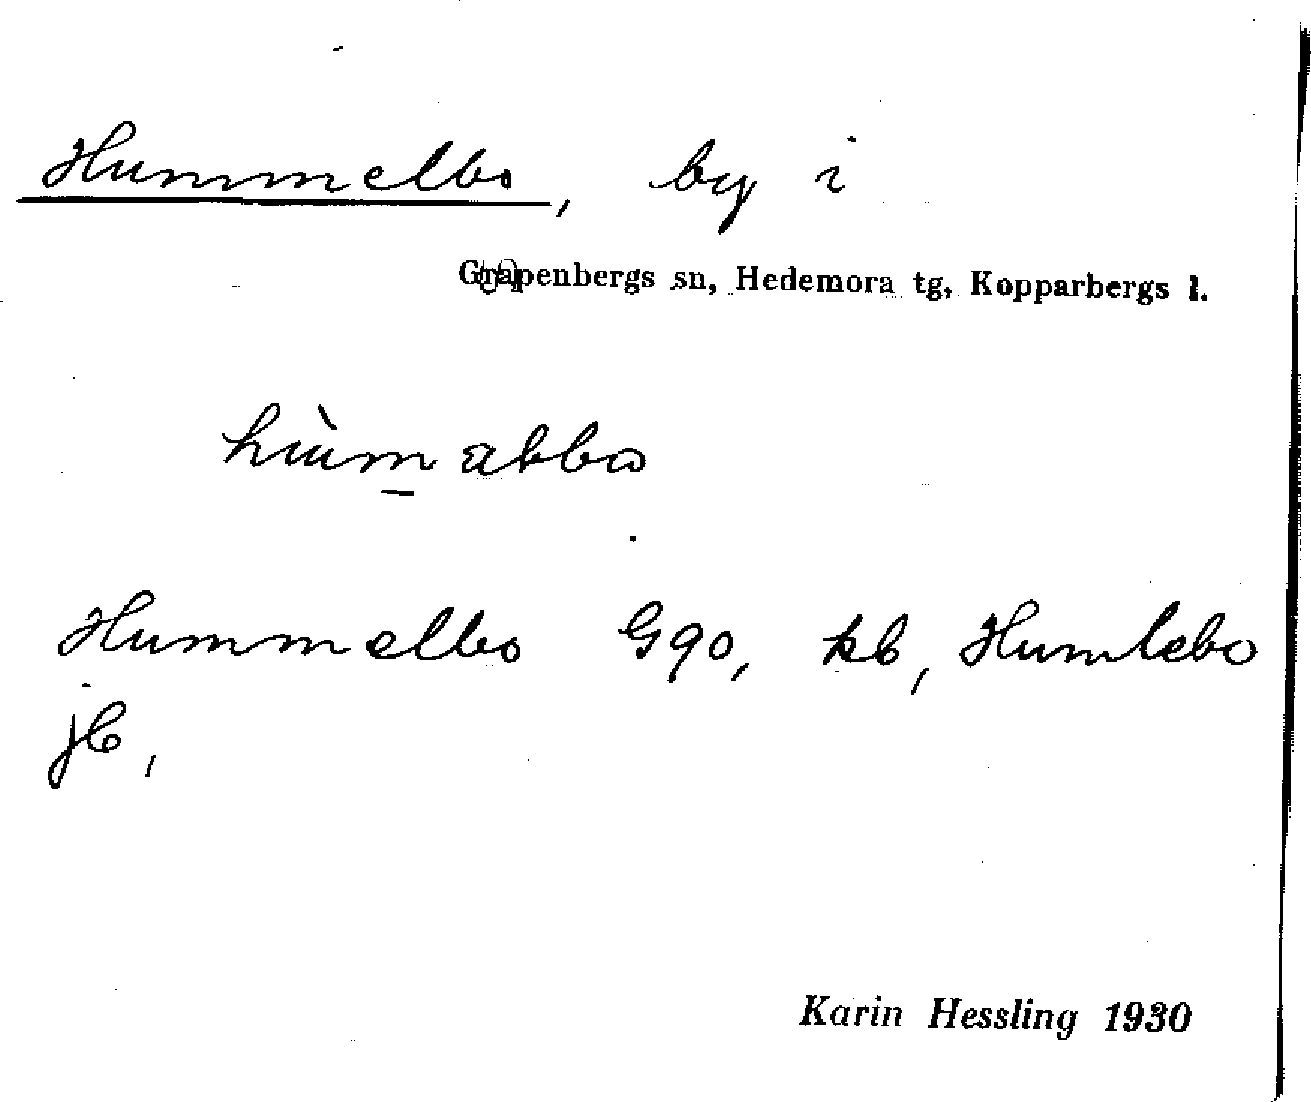 Hummelbo, by i
Grapenbergs sn, Hedemora tg, Kopparbergs l.
hùmabbo
Hummelbo G90, kb, Humlebo
jb,
Karin Hessling 1930